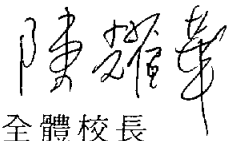 陳耀華
全體校長